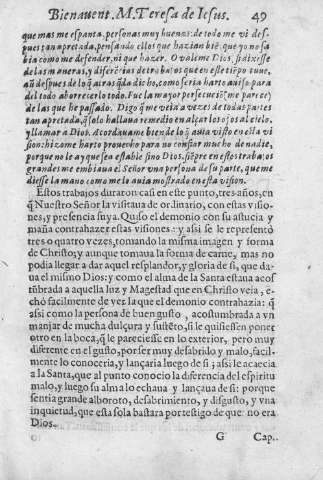 Bienauent. M. Teresa de Iesus. 49
que mas me espanta. personas muy buenas: de todo me vi des-
pues tan apretada, pensando ellos que hazian biẽ: que yo no sa
bia como me defender, ni que hazer. O valame Dios, si dixesse
de las maneras, y diferẽcias de trabajos que en este tiẽpo tuue,
aũ despues de lo q̃ atras q̃da dicho, como seria harto auiso para
del todo aborrecerlo todo. Fue la mayor persecuciõ, me parece
de las que he passado. Digo q̃ me veia a vezes de todas partes
tan apretada, q̃ solo hallaua remedio en alçar los ojos al cielo,
y llamar a Dios. Acordauame bien de lo q̃ auia visto en esta vi
sion: hizome harto prouecho para no confiar mucho de nadie,
porque no le ay que sea estable sino Dios. Siẽpre en estos trabajos
grandes me embiaua el Señor vna persona de su parte, que me
diesse la mano: como me lo auia mostrado en esta vision.
Estos trabajos duraron casi en este punto, tres años, en
q̃ Nuestro Señor la visitaua de ordinario, con estas visio-
nes, y presencia suya. Quiso el demonio con su astucia y
maña contrahazer estas visiones: y assi se le representò
tres o quatro vezes, tomando la misma imagen y forma
de Christo; y aunque tomaua la forma de carne, mas no
podia llegar a dar aquel resplandor, y gloria de si, que da-
ua el mismo Dios: y como el alma de la Santa estaua acos
tũbrada a aquella luz y Magestad que en Christo veia, e-
chò facilmente de ver la que el demonio contrahazia: q̃
assi como la persona de buen gusto, acostumbrada a vn
manjar de mucha dulçura y sustẽto, si le quisiessen poner
otro en la boca, q̃ le pareciesse en lo exterior, pero muy
diferente en el gusto, por ser muy desabrido y malo, facil-
mente lo conoceria, y lançaria luego de si; assi le acaecia
a la Santa, que al punto conocio la diferencia del espiritu
malo, y luego su alma lo echaua y lançaua de si: porque
sentia grande alboroto, desabrimiento, y disgusto, y vna
inquietud, que esta sola bastara por testigo de que no era
Dios.
G Cap.